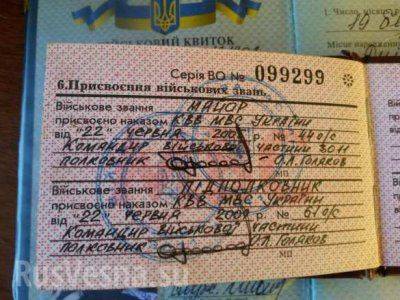 ІЙСЬКОВИЙ КВИТОК
1. Число, місяць
19 0
Місце народжен
Серія ВО № 099299
6. Присвоєння військових звань.
Військове звання МАЙОР
присвоєно наказом КВВ МВС УКРАЇНИ
від "22" ЧЕРВНЯ 200 р. № 44 о/с
КОМАНДИР ВІЙСЬКОВОЇ ЧАСТИНИ 3011
ПОЛКОВНИК О.Л. ГОЛЯКОВ
МП
Військове звання ПІДПОЛКОВНИК
присвоєно наказом КВВ МВС УКРАЇНИ
від "22" ЧЕРВНЯ 2009 р. № 61 о/с
КОМАНДИР ВІЙСЬКОВОЇ ЧАСТИНИ
ПОЛКОВНИК О.Л. ГОЛЯКОВ
МП
RusVesna.su